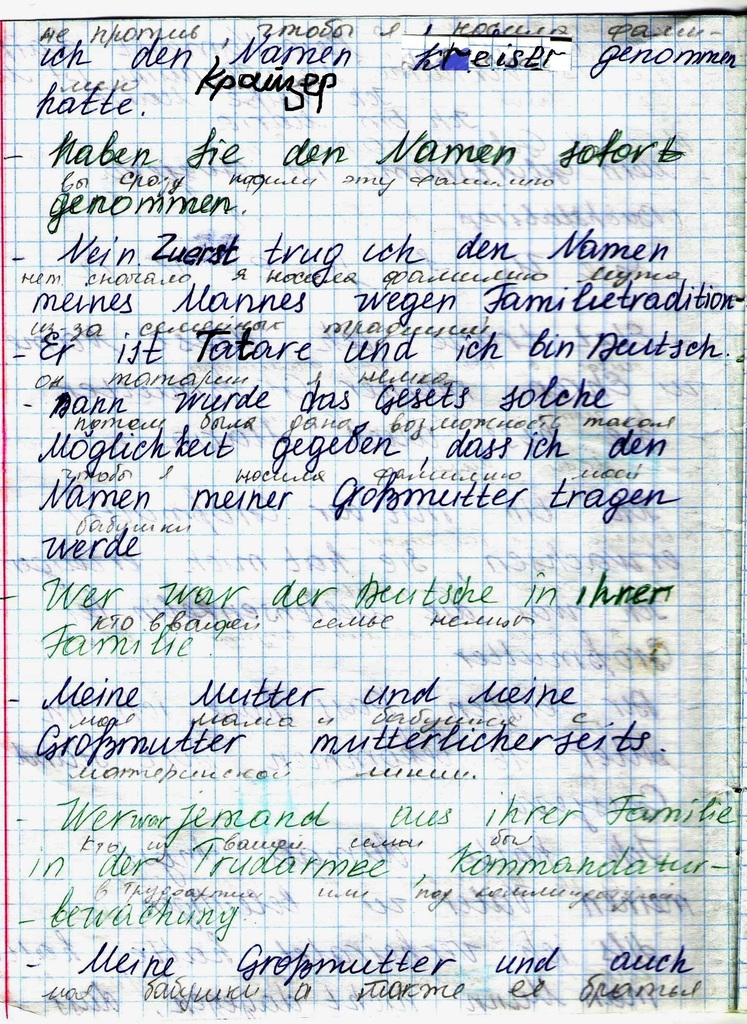 не против, чтобы я носила фами-
ich den Namen Kreister genommen
лию Крайзер
hatte.
- haben Sie den Namen sofort
вы сразу носили эту фамилию
genommen.
- Nein Zuerst trug ich den Namen
нет сначала я носила фамилию мужа
meines Mannes wegen Familietradition-
из за семейных традиций
- Er ist Tatare und ich bin Deutsch.
он татарин я немка
- Dann wurde das Gesets solche
потом была дана возможность такая
Möglichkeit gegeben, dass ich den
чтобы я носила фамилию моей
Namen meiner Großmutter tragen
бабушки
werde
- Wer war der Deutsche in ihrer
кто в вашей семье немцы
Familie?
- Meine Mutter und Meine
моя мама и бабушка с
Großmutter mutterlicherseits.
материнской линии.
- Wer war jemand aus ihrer Familie
кто из вашей семьи был
in der Trudarmee, Kommandatur-
в Трудоармии или под комендатурой
- bewachung
- Meine Großmutter und auch
моя бабушка а также ее братья